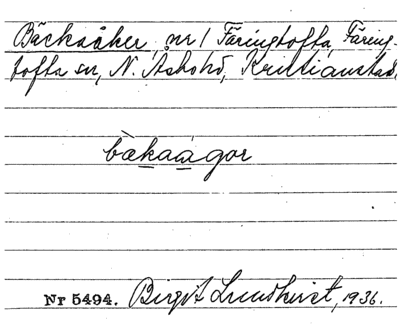 Bäckaåker, nr 1 Färingtofta, Färing-
tofta sn, N. Åsbohd, Kristianstad.
bækaågor
Nr 5494. Birgit Lundkvist, 1936.